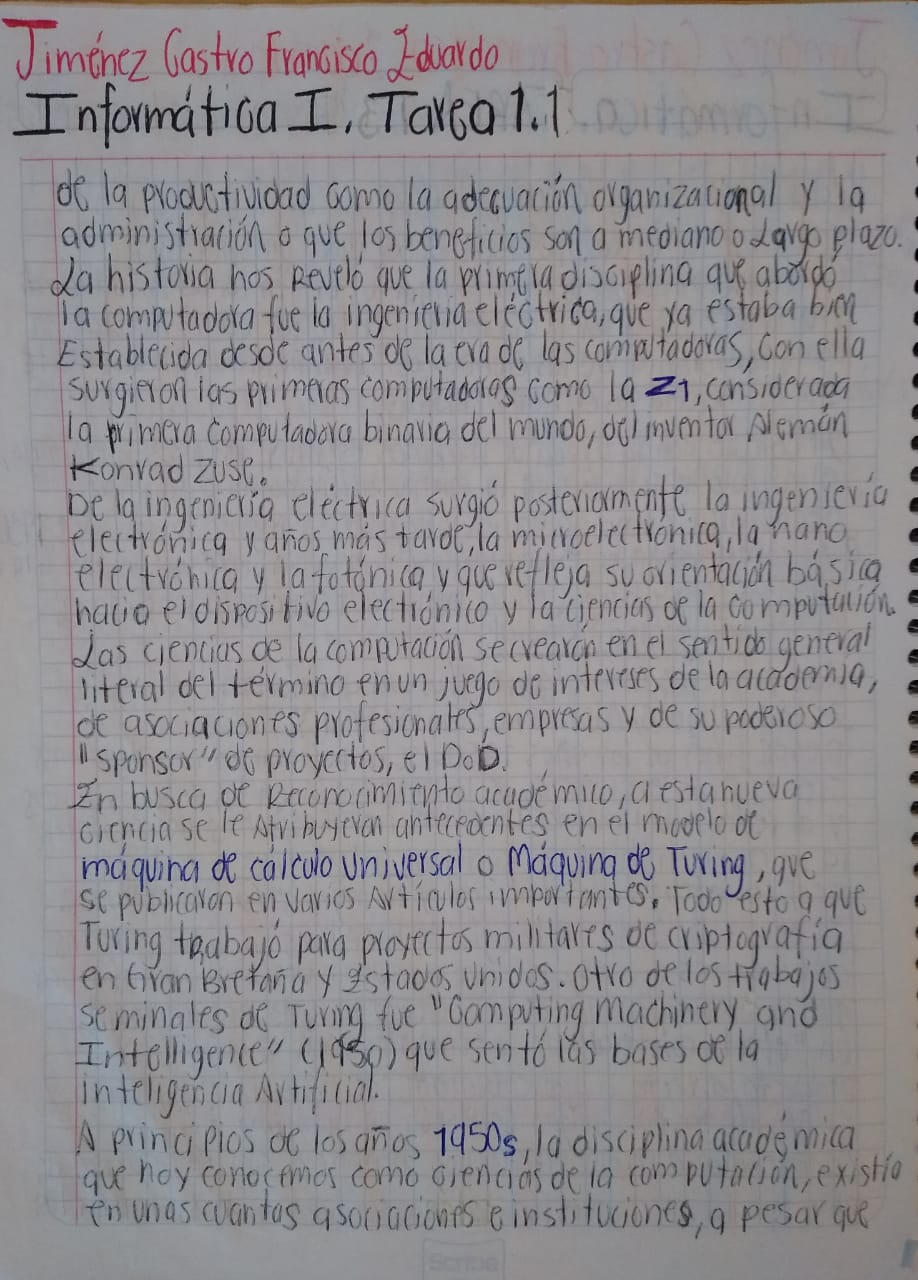 Jiménez Castro Francisco Eduardo
Informática I. Tarea 1.1
de la productividad como la adecuación organizacional y la
administración o que los beneficios son a mediano o Largo plazo.
La historia nos Reveló que la primera disciplina que abordó
la computadora fue la ingenieria eléctrica, que ya estaba bien
Establecida desde antes de la era de las computadoras, Con ella
surgieron las primeras computadoras como la Z1, considerada
la primera Computadora binaria del mundo, del inventor Alemán
Konrad Zuse.
De la ingeniería eléctrica surgió posteriormente la ingeniería
electrónica y años más tarde, la microelectrónica, la nano
electrónica y la fotónica y que refleja su orientación básica
hacia el dispositivo electrónico y la ciencias de la computación.
Las ciencias de la computación se crearón en el sentido general
literal del término en un juego de intereses de la academia,
de asociaciones profesionales, empresas y de su poderoso
"sponsor" de proyectos, el DoD.
En busca de Reconocimiento académico, a esta nueva
ciencia se le Atribuyeron antecedentes en el modelo de
máquina de cálculo Universal o Máquina de Turing, que
se publicaron en varios Artículos importantes. Todo esto a que
Turing trabajó para proyectos militares de criptografía
en Gran Bretaña y Estados Unidos. Otro de los trabajos
seminales de Turing fue "Computing Machinery and
Intelligence" (1950) que sentó las bases de la
inteligencia Artificial.
A principios de los años 1950s, la disciplina académica
que hoy conocemos como ciencias de la computación, existía
en unas cuantas asociaciones e instituciones, a pesar que
Scribe